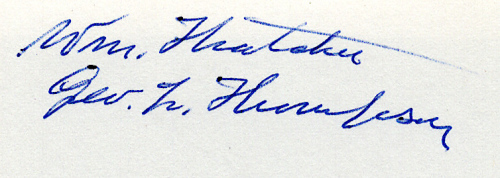 Wm. Thatcher
Geo. L. Thompson